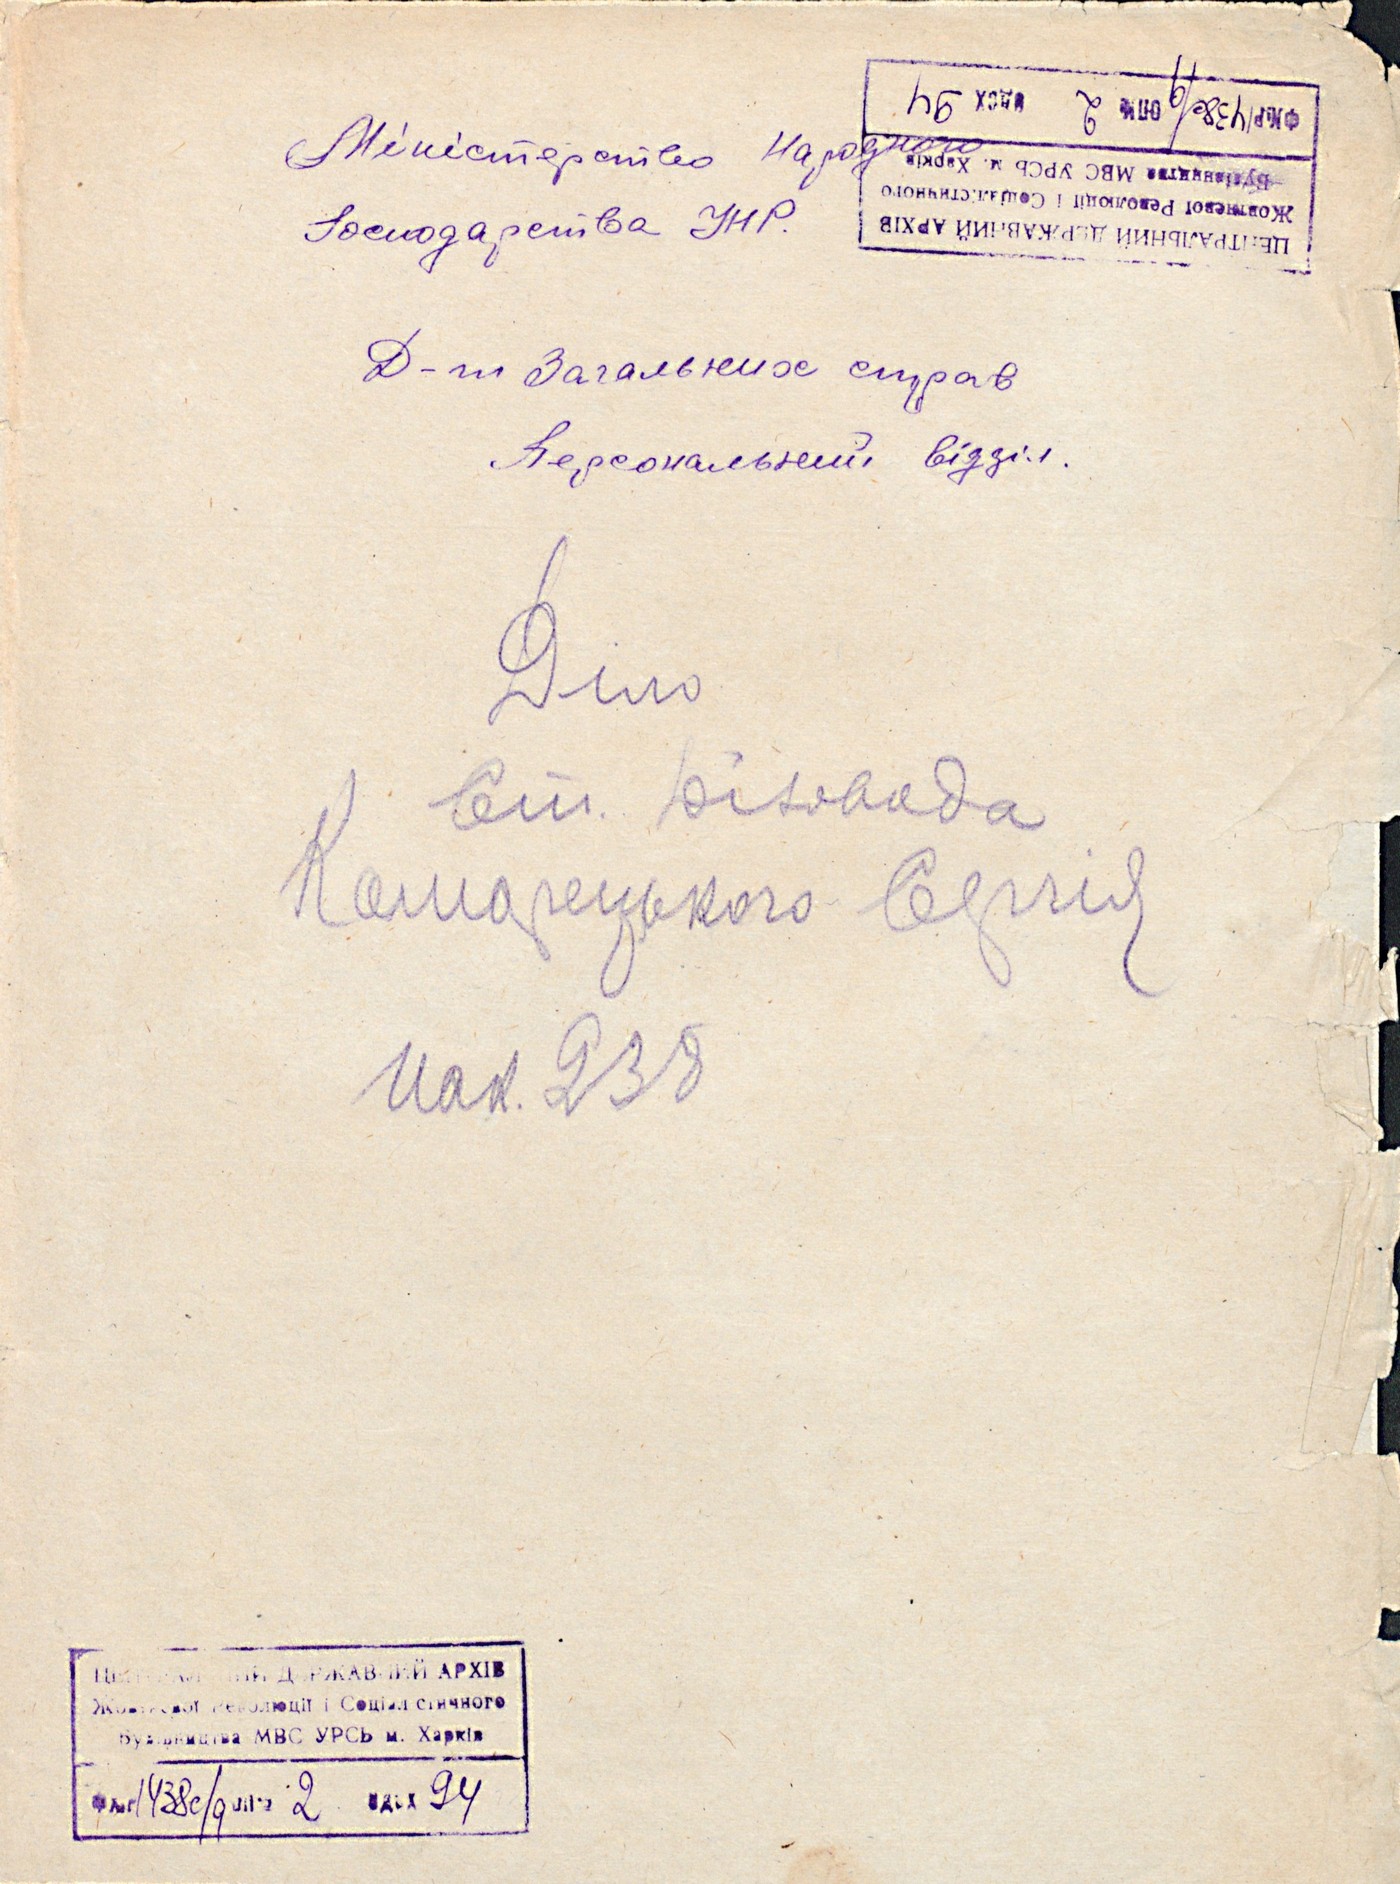 Міністерство Народного
Господарства УНР.
ЦЕНТРАЛЬНИЙ ДЕРЖАВНИЙ АРХІВ
Жовтневої Революції і Соціалістичного
Будівництва МВС УРСР м. Харків
Ф№Р 1438с/9 ОП№ 2 ОДЗХ 94
Д-т Загальних справ
Персональний відділ.
Діло
Ст. Діловода
Комарецького Сергія
Пак. 238
ЦЕНТРАЛЬНИЙ ДЕРЖАВНИЙ АРХІВ
Жовтневої Революції і Соціалістичного
Будівництва МВС УРСР м. Харків
1438с/9 2 94